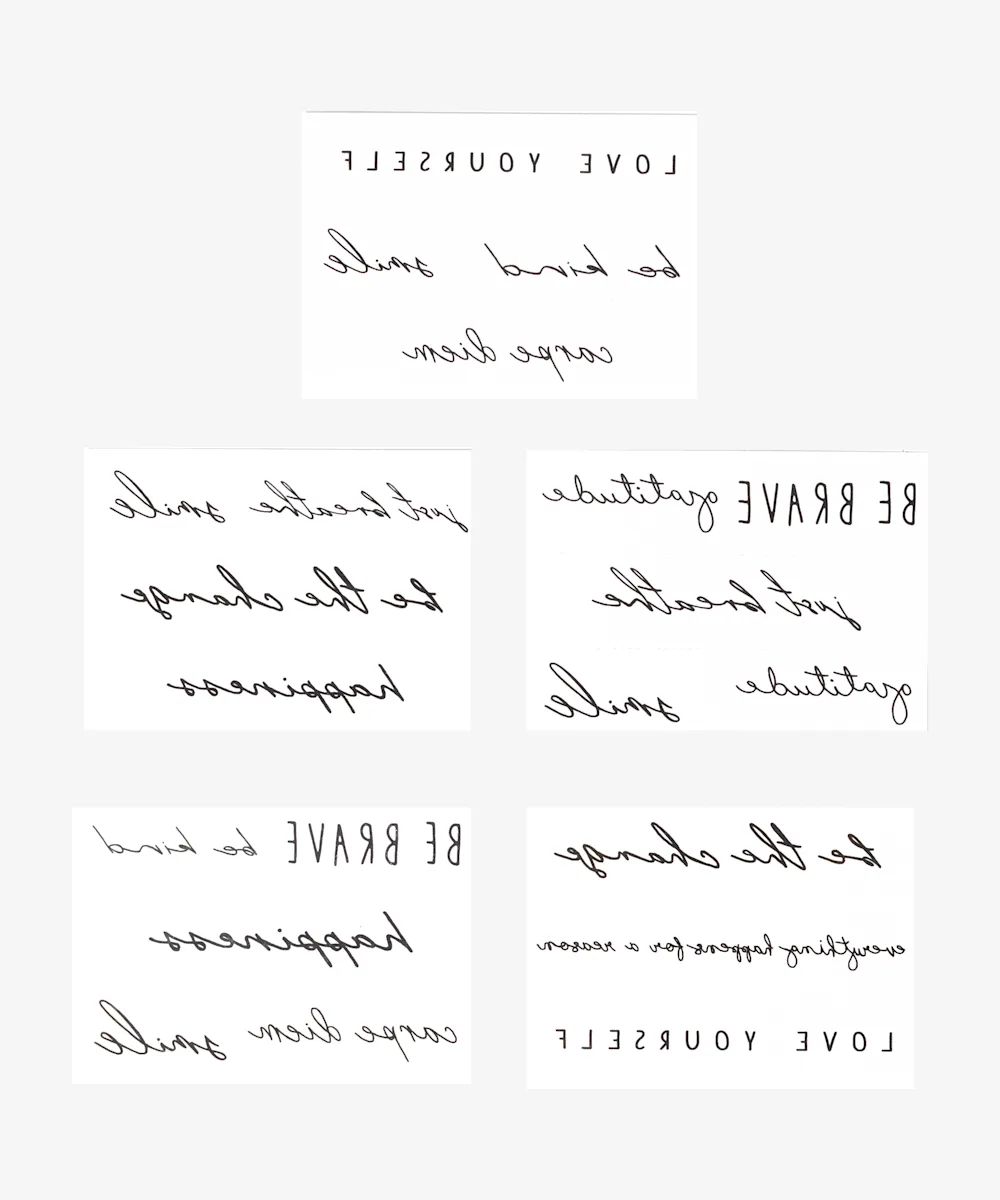 LOVE YOURSELF
be kind smile
carpe diem
just breathe smile
be the change
happiness
BE BRAVE gratitude
just breathe
gratitude smile
BE BRAVE be kind
happiness
carpe diem smile
be the change
everything happens for a reason
LOVE YOURSELF